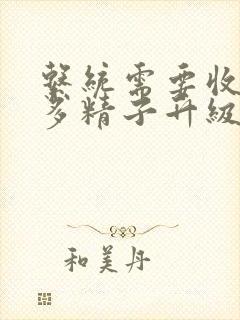 系統需要收
多精子升級
和美丹